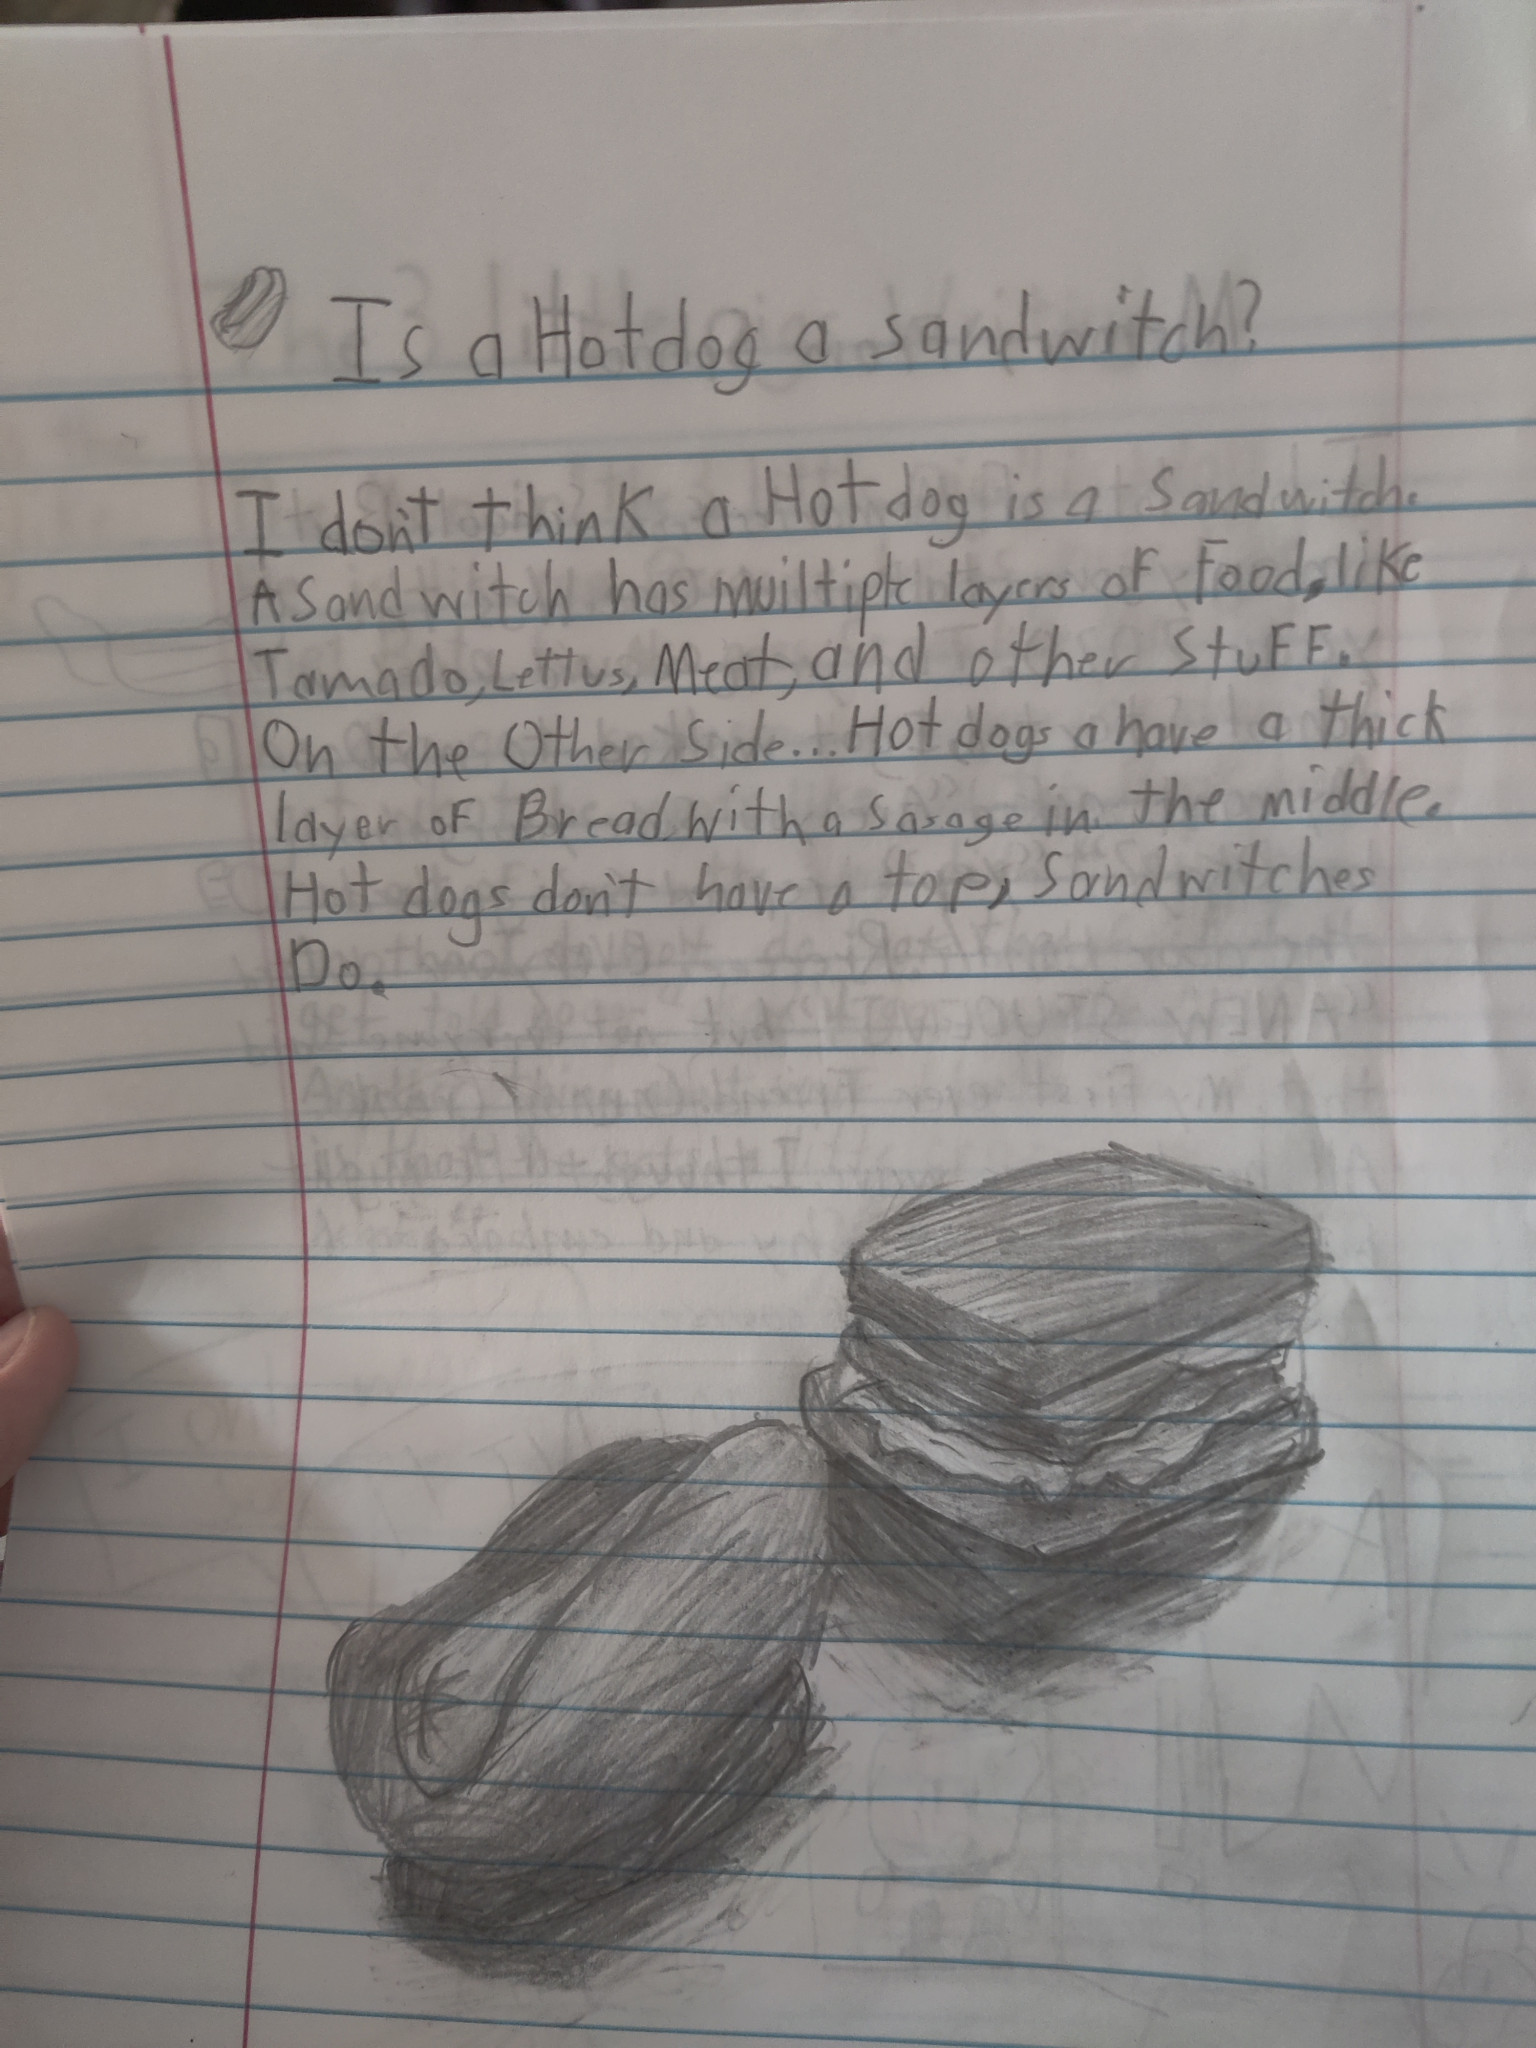 Is a Hotdog a sandwitch?
I don't think a Hot dog is a Sandwitch.
A Sandwitch has muiltiple layers of Food, like
Tamado, Lettus, Meat, and other StuFF.
On the Other Side... Hot dogs a have a thick
layer of Bread with a Sasage in the middle.
Hot dogs don't have a top, Sandwitches
Do.